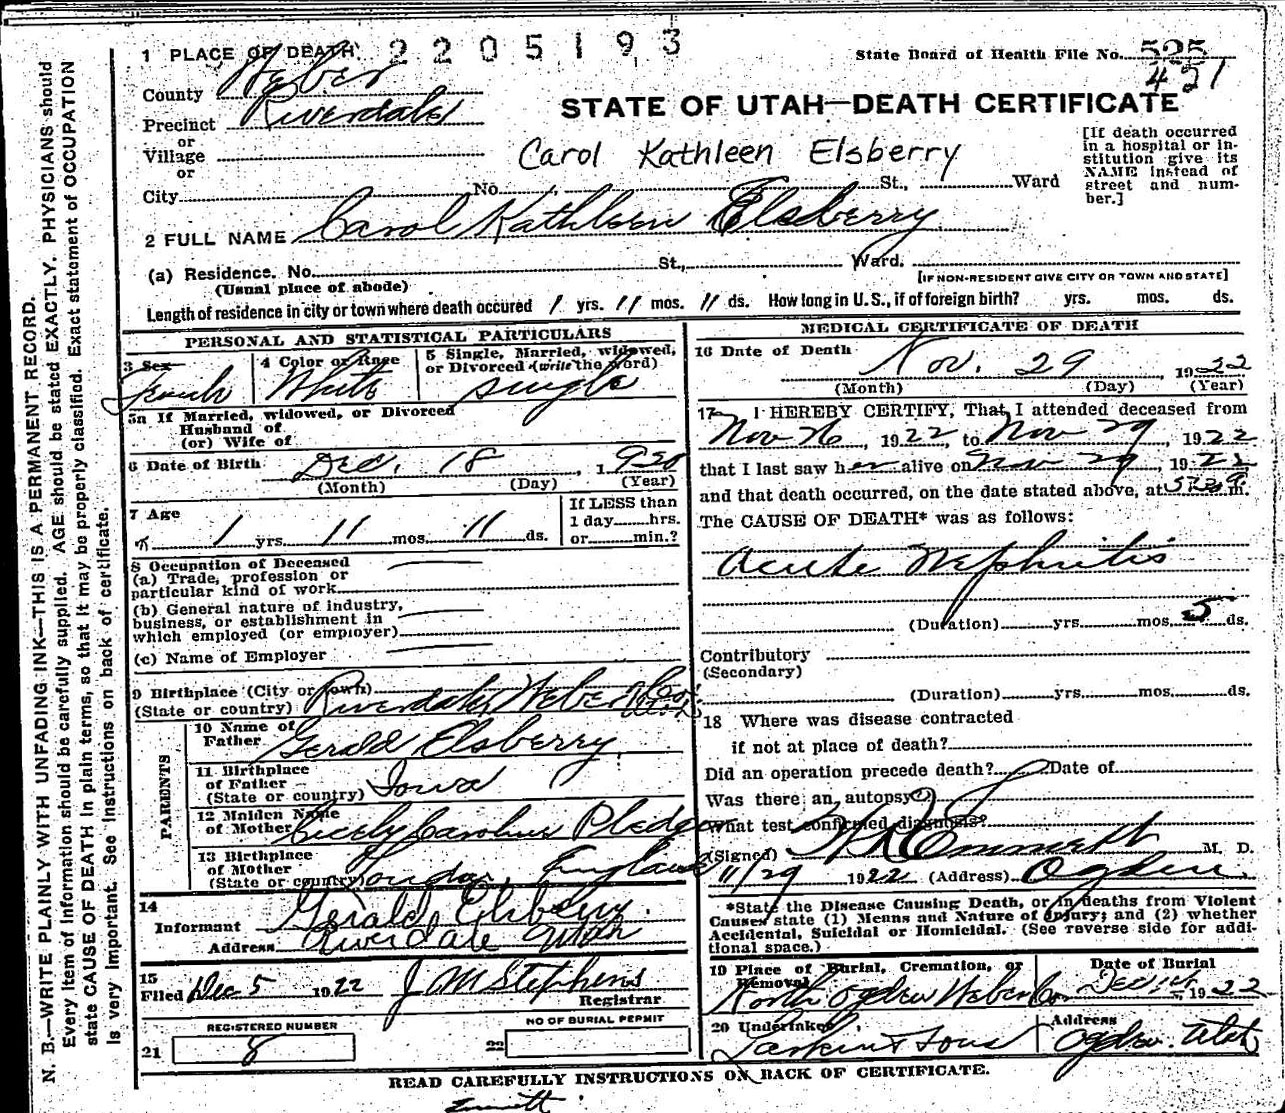 1 PLACE OF DEATH 2205193
State Board of Health File No. 525
451
County Weber
Precinct Riverdale
or
Village
or
STATE OF UTAH—DEATH CERTIFICATE
Carol Kathleen Elsberry
[If death occurred in a hospital or in-
stitution give its
NAME instead of
street and num-
ber.]
City No. St., Ward
2 FULL NAME Carol Kathleen Elsberry
(a) Residence. No. St., Ward.
(Usual place of abode)
[IF NON-RESIDENT GIVE CITY OR TOWN AND STATE]
Length of residence in city or town where death occured 1 yrs. 11 mos. 11 ds. How long in U.S., if of foreign birth? yrs. mos. ds.
PERSONAL AND STATISTICAL PARTICULARS
3 Sex Female
4 Color or Race White
5 Single, Married, widowed,
or Divorced (write the word) single
5a If Married, widowed, or Divorced
Husband of
(or) Wife of
6 Date of Birth Dec. 18, 1920
(Month) (Day) (Year)
7 Age
1 yrs. 11 mos. 11 ds.
If LESS than
1 day hrs.
or min.?
8 Occupation of Deceased
(a) Trade, profession or
particular kind of work
(b) General nature of industry,
business, or establishment in
which employed (or employer)
(c) Name of Employer
9 Birthplace (City or town)
(State or country) Riverdale, Weber Co. Utah
PARENTS
10 Name of
Father Gerald Elsberry
11 Birthplace
of Father
(State or country) Iowa
12 Maiden Name
of Mother Cicely Caroline Pledger
13 Birthplace
of Mother
(State or country) London, England
14
Informant Gerald Elsberry
Address Riverdale Utah
15
Filed Dec 5 1922 J M Stephens
Registrar
REGISTERED NUMBER
21 8
NO OF BURIAL PERMIT
22
MEDICAL CERTIFICATE OF DEATH
16 Date of Death Nov. 29 1922
(Month) (Day) (Year)
17 I HEREBY CERTIFY, That I attended deceased from
Nov 26, 1922, to Nov 29, 1922
that I last saw her alive on Nov 29, 1922
and that death occurred, on the date stated above, at m.
The CAUSE OF DEATH* was as follows:
Acute Nephritis
(Duration) yrs. mos. 5 ds.
Contributory
(Secondary)
(Duration) yrs. mos. ds.
18 Where was disease contracted
if not at place of death?
Did an operation precede death? Date of
Was there an autopsy?
What test confirmed diagnosis?
(Signed) Emmett M. D.
11/29 1922 (Address) Ogden.
*State the Disease Causing Death, or in deaths from Violent
Causes state (1) Means and Nature of Injury; and (2) whether
Accidental, Suicidal or Homicidal. (See reverse side for addi-
tional space.)
19 Place of Burial, Cremation, or
Removal
North Ogden Weber Co
Date of Burial
Dec 1st, 1922
20 Undertaker
Larkin & Sons
Address
Ogden, Utah
READ CAREFULLY INSTRUCTIONS ON BACK OF CERTIFICATE.
Emmett
N. B.—WRITE PLAINLY WITH UNFADING INK—THIS IS A PERMANENT RECORD.
Every item of information should be carefully supplied. AGE should be stated EXACTLY. PHYSICIANS should
state CAUSE OF DEATH in plain terms, so that it may be properly classified. Exact statement of OCCUPATION
is very important. See instructions on back of certificate.